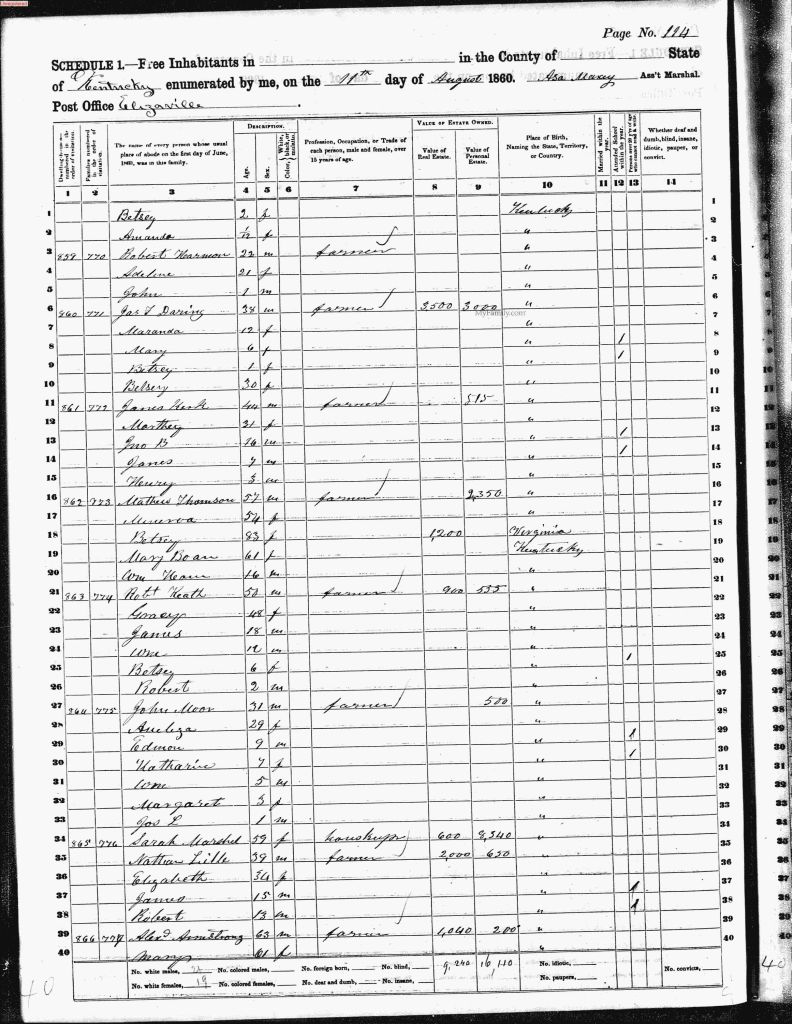 Page No. 114
SCHEDULE 1.—Free Inhabitants in in the County of State
of Kentucky enumerated by me, on the 11th day of August 1860. Asa Maxey Ass't Marshal.
Post Office Elizaville
DESCRIPTION. VALUE OF ESTATE OWNED.
Dwelling-houses numbered in the order of visitation. Families numbered in the order of visitation. The name of every person whose usual place of abode on the first day of June, 1860, was in this family. Age. Sex. Color, White, black, or mulatto. Profession, Occupation, or Trade of each person, male and female, over 15 years of age. Value of Real Estate. Value of Personal Estate. Place of Birth, Naming the State, Territory, or Country. Married within the year. Attended School within the year. Persons over 20 y'rs of age who cannot read & write. Whether deaf and dumb, blind, insane, idiotic, pauper, or convict.
1 2 3 4 5 6 7 8 9 10 11 12 13 14
1 Betsey 2 f Kentucky 1
2 Amanda 1/12 f " 2
3 859 770 Robert Harmon 22 m farmer " 3
4 Adeline 21 f " 4
5 John 1 m " 5
6 860 771 Jas T Daring 38 m farmer 3,500 3000 " 6
MyFamily.com
7 Maranda 12 f " 7
8 Mary 6 f " 1 8
9 Betsey 1 f " 1 9
10 Betsey 30 f " 10
11 861 772 James 44 m farmer 515 " 11
12 Marthey 21 f " 12
13 Jno B 16 m " 1 13
14 James 7 m " 1 14
15 Henry 3 m " 15
16 862 773 Mathew Thomson 57 m farmer 2,350 " 16
17 Minerva 54 f " 17
18 Betsey 83 f 1,200 Virginia 18
19 Mary Boan 61 f Kentucky 19
20 Wm 16 m " 20
21 863 774 Robt Heath 50 m farmer 900 555 " 21
22 48 f " 22
23 James 18 m " 23
24 Wm 12 m " 24
25 Betsey 6 f " 1 25
26 Robert 2 m " 26
27 864 775 John Moor 31 m farmer 500 " 27
28 Aneliza 29 f " 28
29 Edmon 9 m " 1 29
30 Katharin 7 f " 1 30
31 Wm 5 m " 31
32 Margaret 3 f " 32
33 Jos L 1 m " 33
34 865 776 Sarah Marshel 59 f 600 8,340 " 34
35 Nathan 39 m farmer 2,000 650 " 35
36 Elizabeth 34 f " 36
37 James 15 m " 1 37
38 Robert 13 m " 1 38
39 866 777 Alexd Armstrong 63 m farmer 1,040 200 " 39
40 Mary 61 f " 40
No. white males, 21 No. colored males, No. foreign born, No. blind, 9,240 16,110 No. idiotic, No. convicts,
No. white females, 19 No. colored females, No. deaf and dumb, No. insane, No. paupers,
40